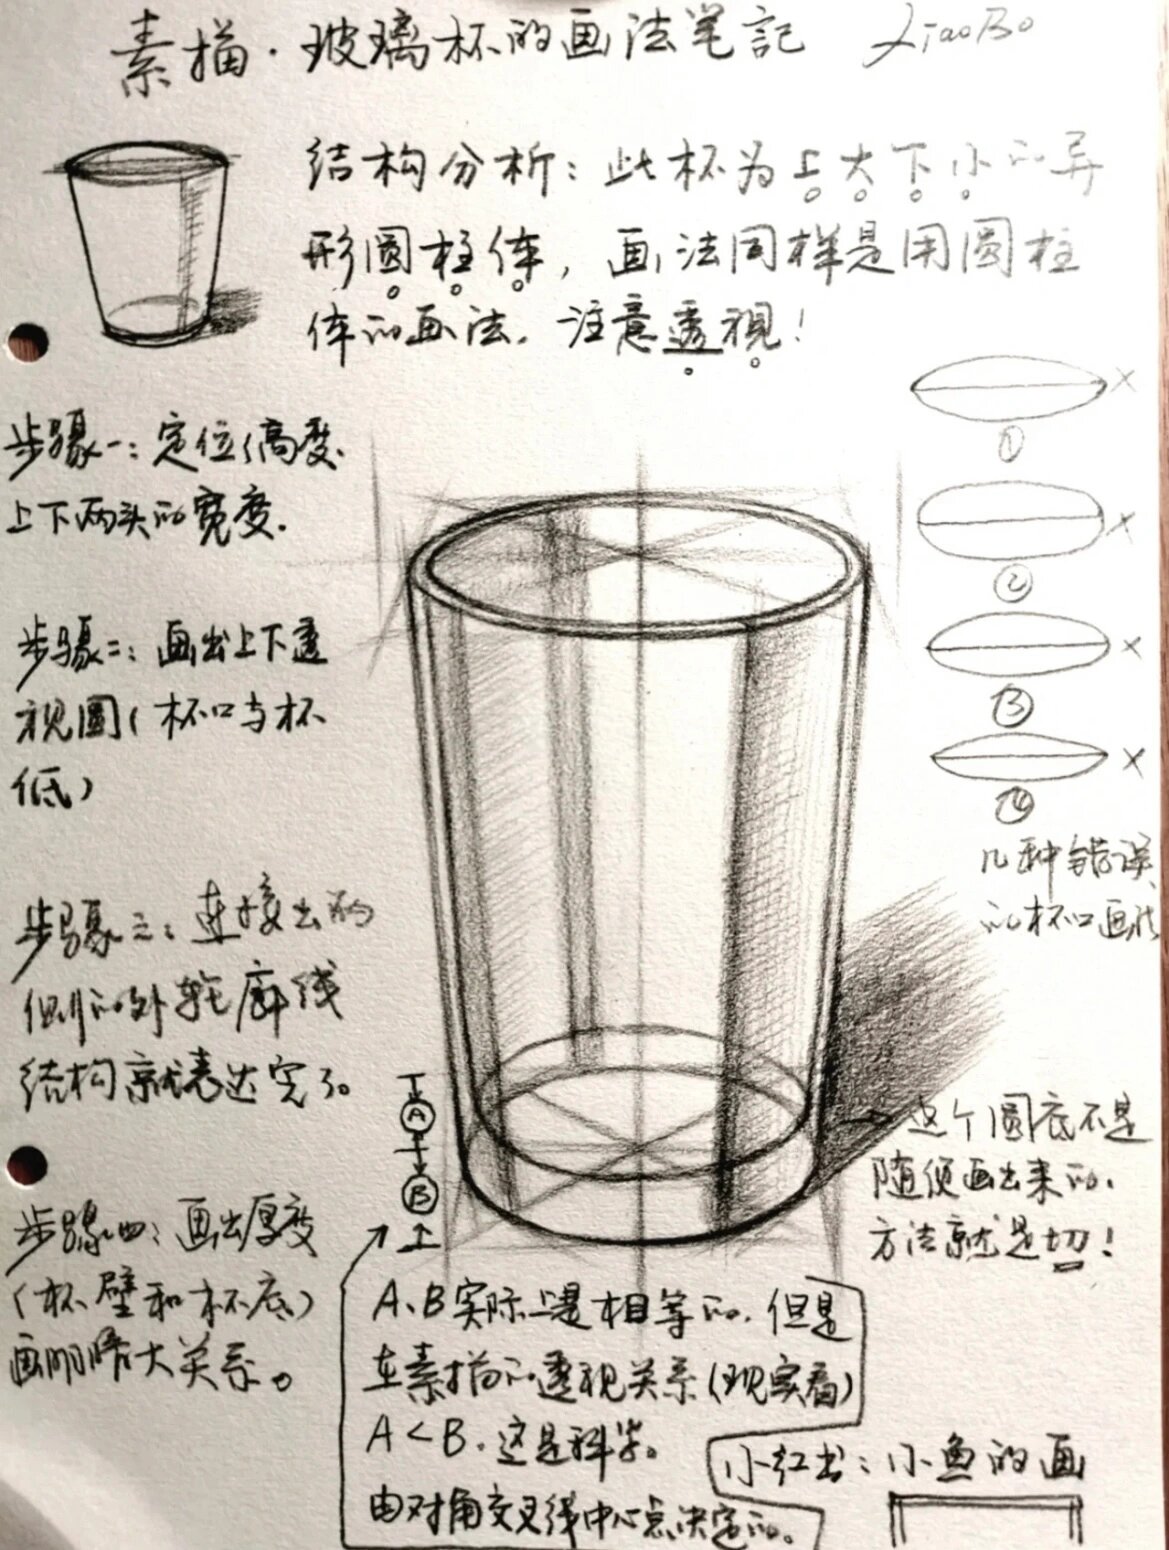 素描·玻璃杯的画法笔記
XiaoBo
结构分析：此杯为上大下小的异
形圆柱体，画法同样是用圆柱
体的画法．注意透视！
步骤一：定位（高度．
上下两头的宽度．
步骤二：画出上下透
视圆（杯口与杯
低）
步骤三：连接出两
侧的外轮廓线
结构就表达完了。
步骤四：画出厚度
（杯壁和杯底）
画明暗大关系。
×
①
×
②
×
③
×
④
几种错误
的杯口画法
A
B
→这个圆底不是
随便画出来的．
方法就是切！
A、B实际上是相等的．但是
在素描的透视关系（现实看）
A＜B．这是科学。
由对角交叉线中心点决定的。
小红书：小鱼的画